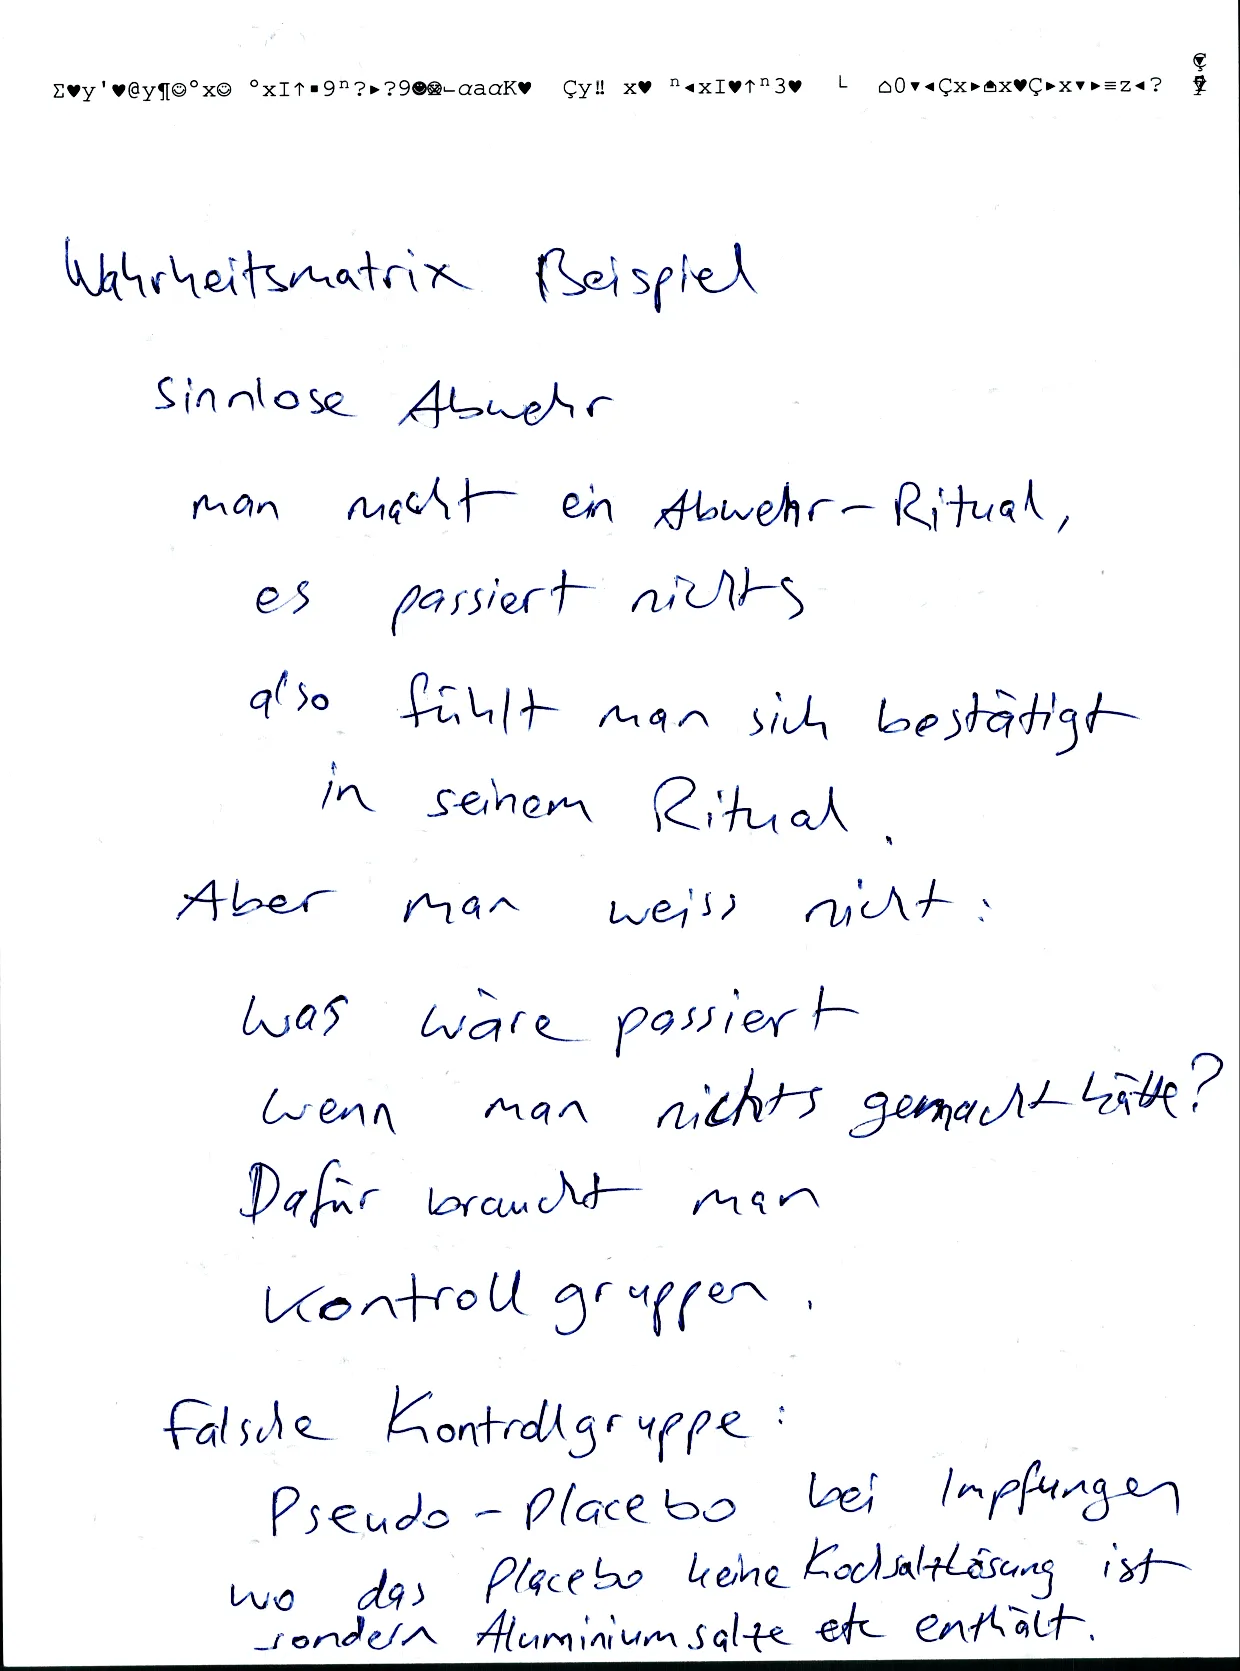 Σ♥y'♥@y¶☺°x☺ °xI↑▪9ⁿ?►?9☻◙∟αaαK♥ Çy‼ x♥ ⁿ◄xI♥↑ⁿ3♥ └ ⌂0▼◄Çx►⌂x♥Ç►x▼►≡z◄?
Wahrheitsmatrix Beispiel
Sinnlose Abwehr
man macht ein Abwehr-Ritual,
es passiert nichts
also fühlt man sich bestätigt
in seinem Ritual.
Aber man weiss nicht:
was wäre passiert
wenn man nichts gemacht hätte?
Dafür braucht man
Kontrollgruppen.
Falsche Kontrollgruppe:
Pseudo-Placebo bei Impfungen
wo das Placebo keine Kochsalzlösung ist
sondern Aluminiumsalze etc enthält.